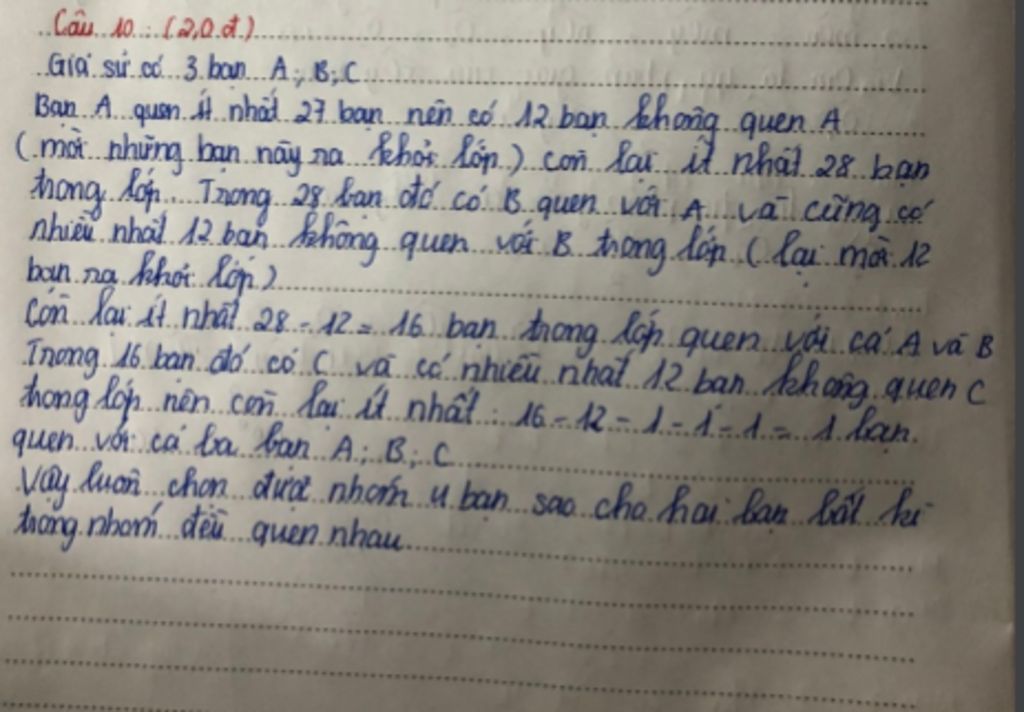 Câu 10: (2,0 đ)
Giả sử có 3 bạn A; B; C
Bạn A quen ít nhất 27 bạn nên có 12 bạn không quen A
(mời những bạn này ra khỏi lớp) còn lại ít nhất 28 bạn
trong lớp. Trong 28 bạn đó có B quen với A và cũng có
nhiều nhất 12 bạn không quen với B trong lớp (lại mời 12
bạn ra khỏi lớp)
Còn lại ít nhất 28 - 12 = 16 bạn trong lớp quen với cả A và B
Trong 16 bạn đó có C và có nhiều nhất 12 bạn không quen C
trong lớp nên còn lại ít nhất: 16 - 12 - 1 - 1 - 1 = 1 bạn.
quen với cả ba bạn A; B; C
Vậy luôn chọn được nhóm 4 bạn sao cho hai bạn bất kì
trong nhóm đều quen nhau.